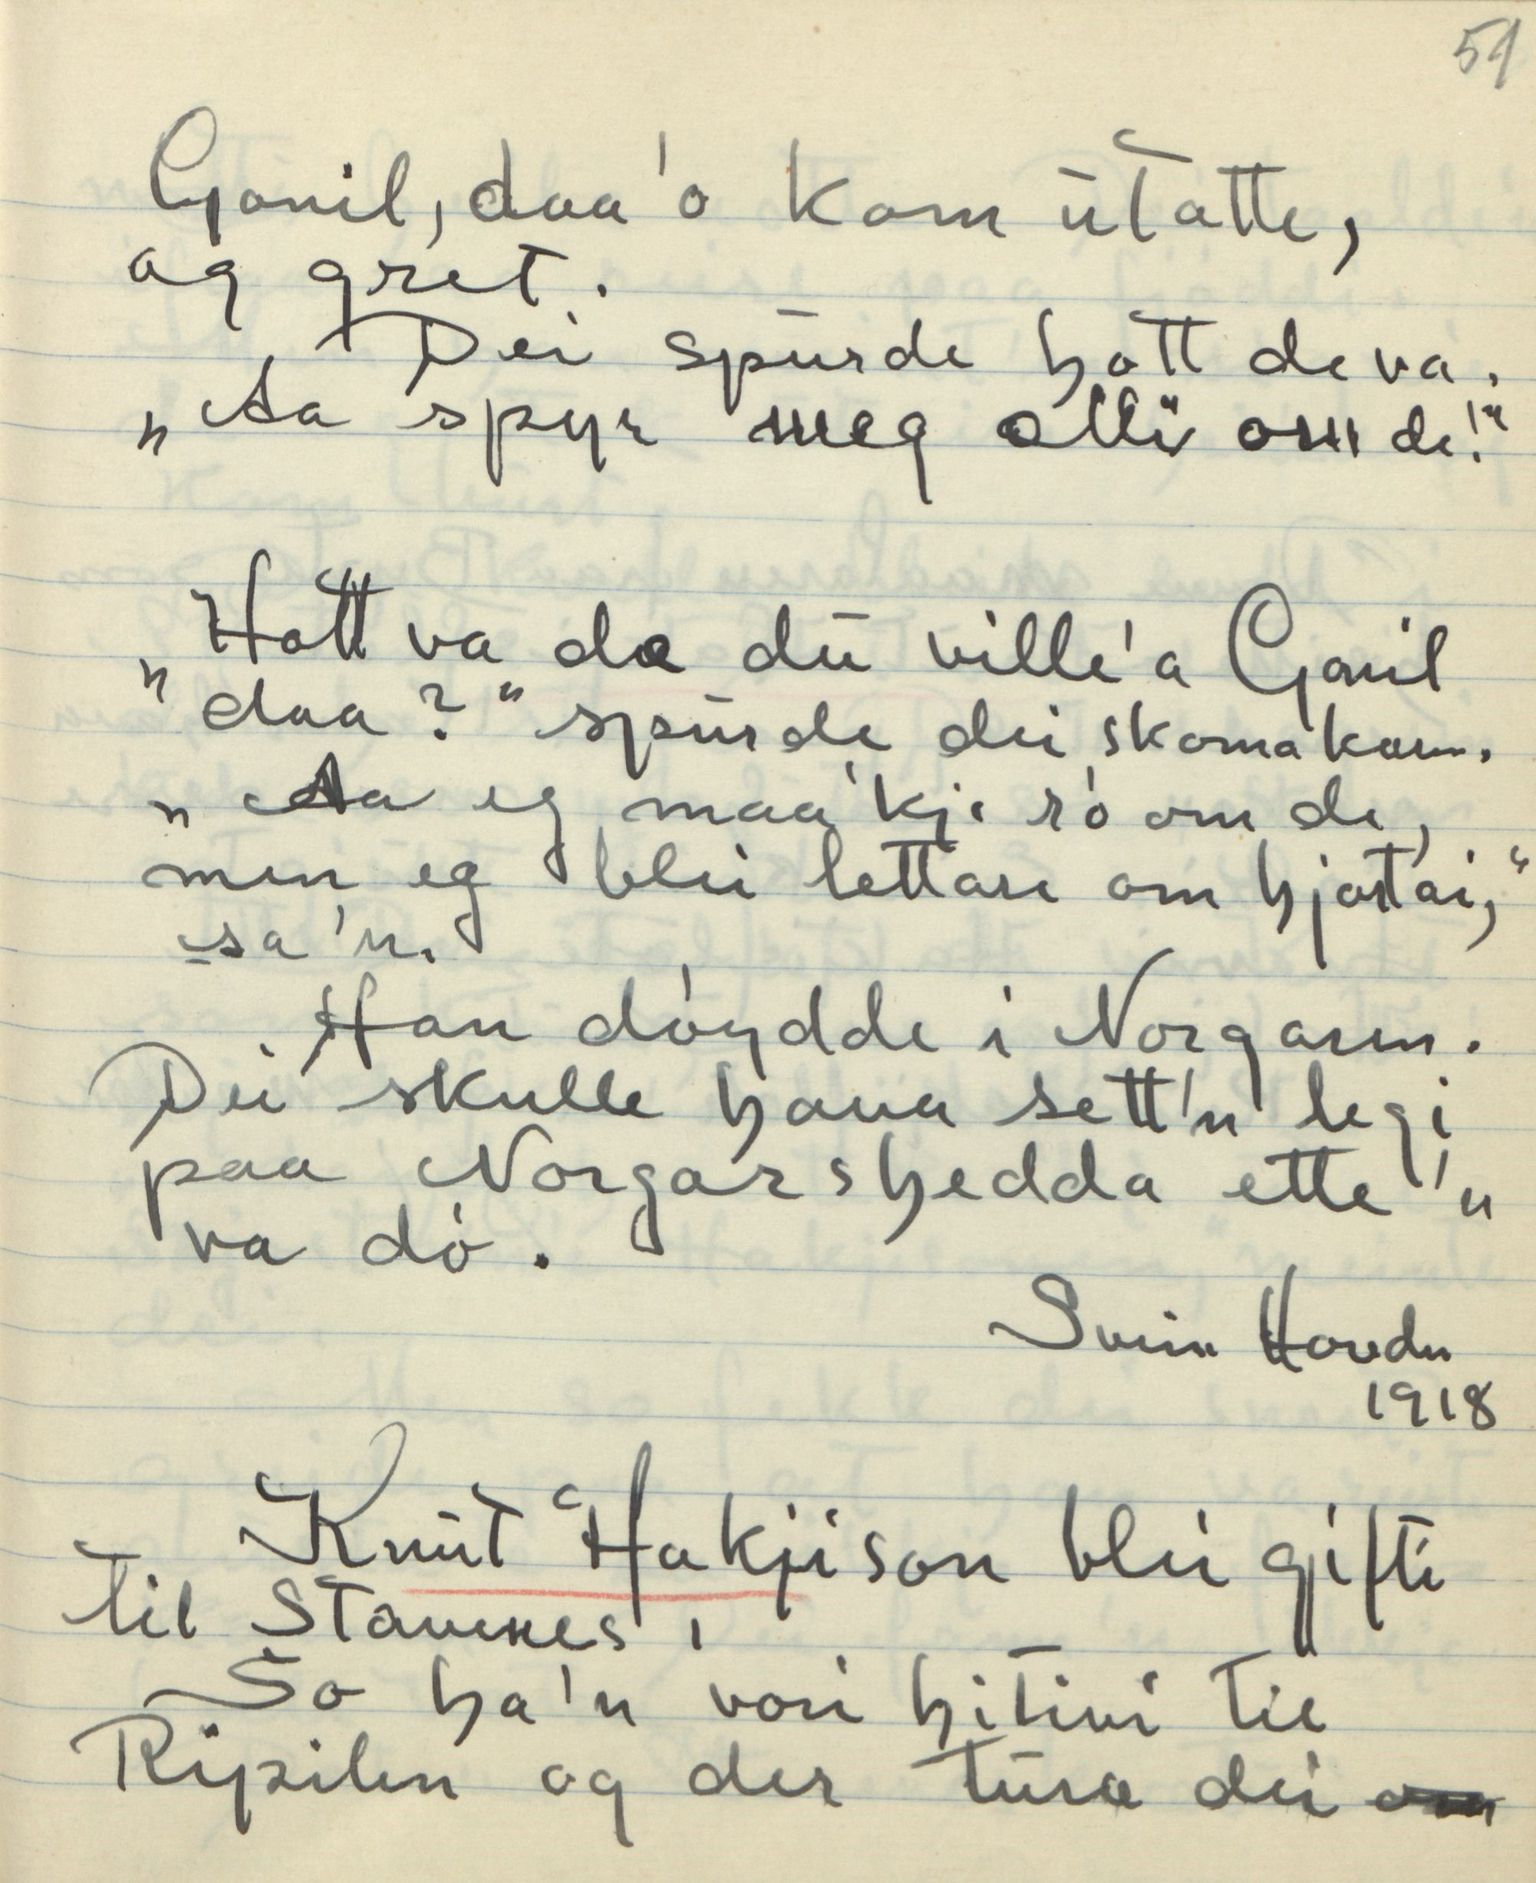 51
Gonil, daa'o kom ūtatte,
og gret.
Dei spūrde hott de va.
„Aa spyr meg alli om de!"
„Hott va de dū ville'a Gonil
daa?" spūrde dei skomakarn.
„Aa eg maa'kje ró om de,
men eg blei lettare om hjarta i,"
sa'n.
Han dóydde i Norgaren.
Dei skulle hava sett'n legi
paa Norgarshedda ette'n
va dó.
Svein Hovdn
1918
Knūt Hakjeson blei gjifte
til Stavenes,
So ha'n vori hitivi til
Ripilen og der tūra dei